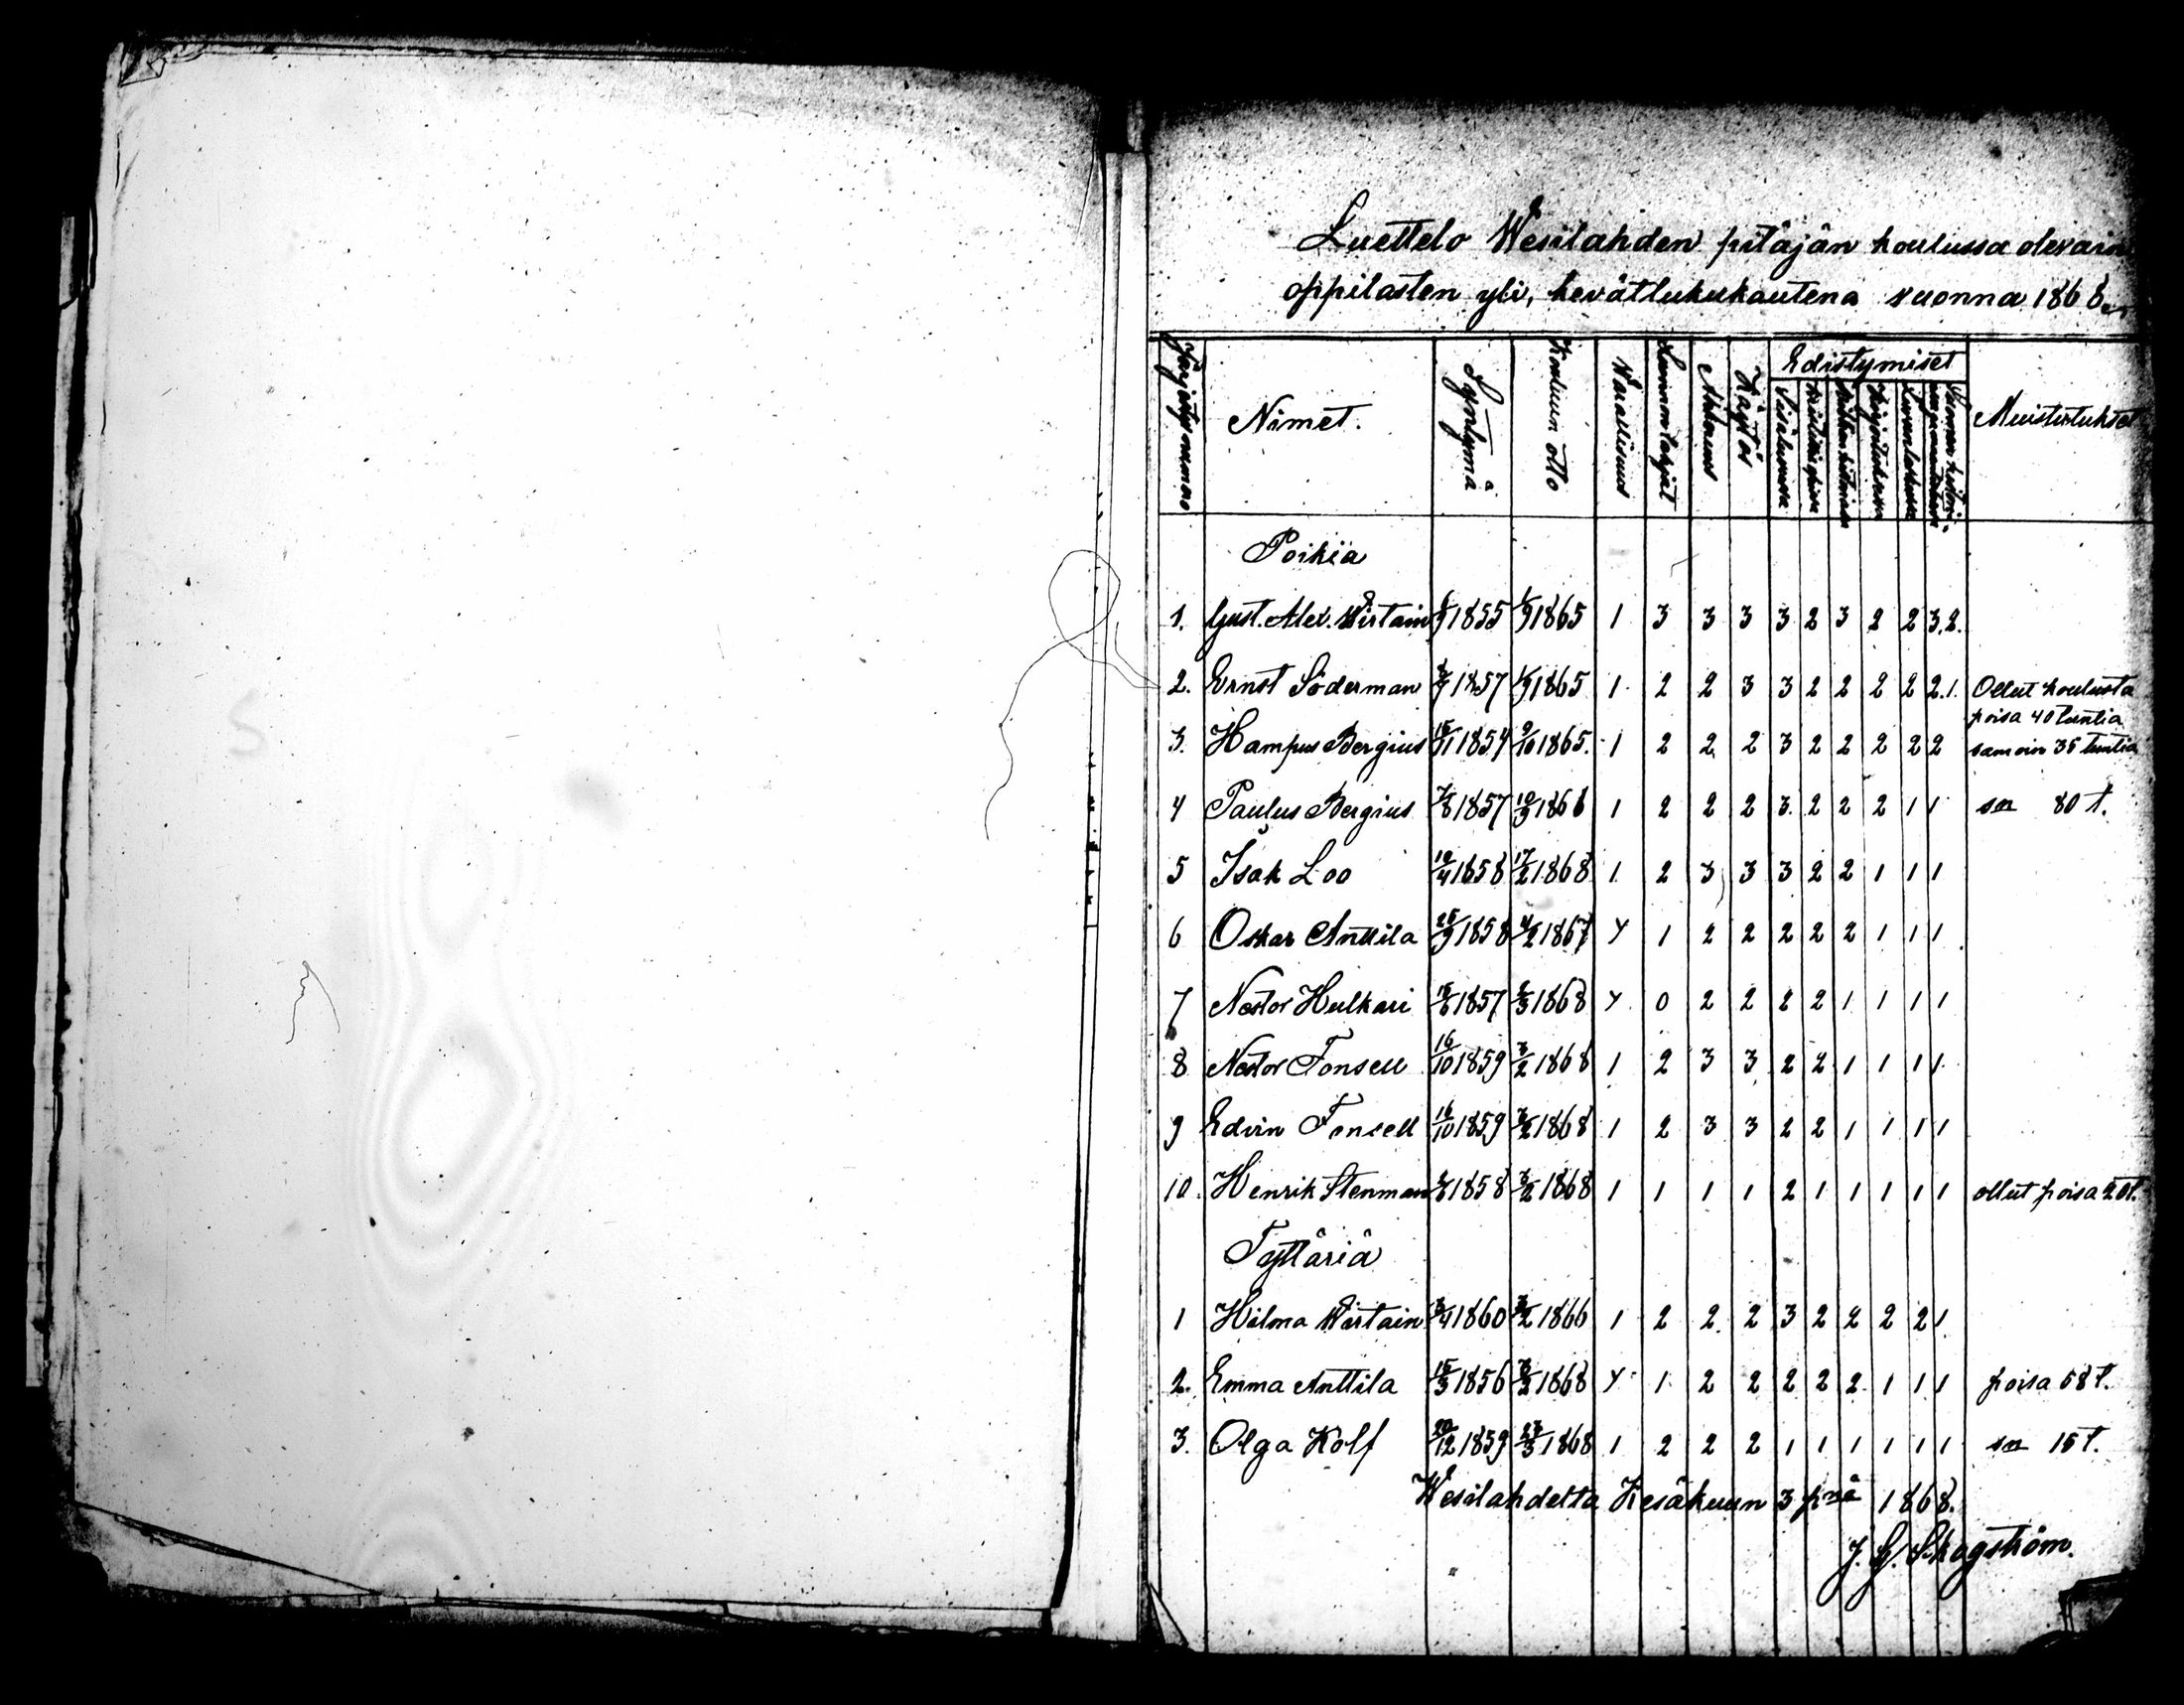 Luettelo Wesilahden pitäjän koulussa olevain
oppilasten yli, kevätlukukautena vuonna 1868.
Järjestys numero Nimet. Syntymä Kouluun otto Warallisuus Luonnonlahjat Ahkeruus Käytös Edistymiset Muistutukset
Sisäluvussa Kirjoituksessa Luvunlaskussa
Poikia
1. Gust. Alex. Wirtain 1855 1/9 1865 1 3 3 3 3 2 3 2 2 3.2.
2. Ernst Söderman 1857 1/9 1865 1 2 2 3 3 2 2 2 2 2.1. Ollut koulusta
poisa 40 tuntia
3. Hampus Bergius 15/11 1854 9/10 1865. 1 2 2 2 3 2 2 2 2 2 samoin 35 tuntia
4 Paulus Bergius 7/8 1857 10/9 1866 1 2 2 2 3. 2 2 2 1 1 sn 80 t.
5 Isak Loo 19/4 1858 17/2 1868 1 2 3 3 3 2 2 1 1 1
6 Oskar Anttila 25/9 1858 4/2 1867 4 1 2 2 2 2 2 1 1 1
7 Nestor Hulkari 15/6 1857 2/3 1868 4 0 2 2 2 2 1 1 1 1
8 Nestor Fonsell 16/10 1859 3/2 1868 1 2 3 3 2 2 1 1 1 1
9 Edvin Fonsell 16/10 1859 3/2 1868 1 2 3 3 2 2 1 1 1 1
10. Henrik Stenman 1858 3/2 1868 1 1 1 1 2 1 1 1 1 1 ollut poisa 20 t.
Tyttäriä
1 Hilma Wirtain 3/4 1860 3/2 1866 1 2 2 2 3 2 2 2 2 1
2. Emma Anttila 15/3 1856 3/2 1868 4 1 2 2 2 2 2 1 1 1 poisa 68 t.
3. Olga Kolf 20/12 1859 23/3 1868 1 2 2 2 1 1 1 1 1 1 sn 15 t.
Wesilahdelta Kesäkuun 3 pnä 1868.
J. G. Skogström.